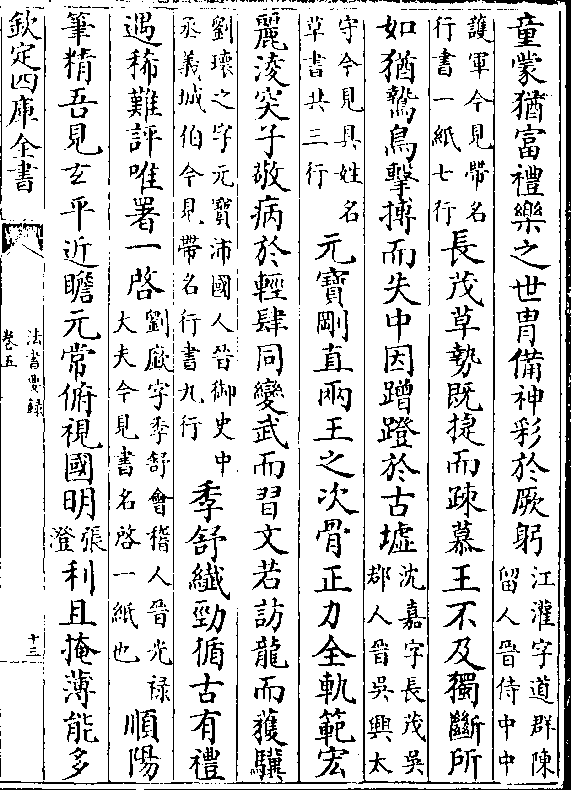 童蒙猶富禮樂之世胄備神彩於厥躬
江灌字道群陳
留人晉侍中中
護軍今見帶名
行書一紙七行
長茂草勢既捷而疎慕王不及獨斷所
如猶鷙鳥擊搏而失中因蹭蹬於古墟
沈嘉字長茂吳
郡人晉吳興太
守今見具姓名
草書共三行
元寶剛直兩王之次骨正力全軌範宏
麗淩突子敬病於輕肆同變武而習文若訪龍而獲驥
劉瓌之字元寶沛國人晉御史中
丞義城伯今見帶名行書九行
季舒纖勁循古有禮
遇稀難評唯署一啓
劉廞字季舒會稽人晉光禄
大夫今見書名啓一紙也
順陽
筆精吾見玄平近瞻元常俯視國明
張
澄
利且掩薄能多
欽定四庫全書
法書要録
卷五
十三